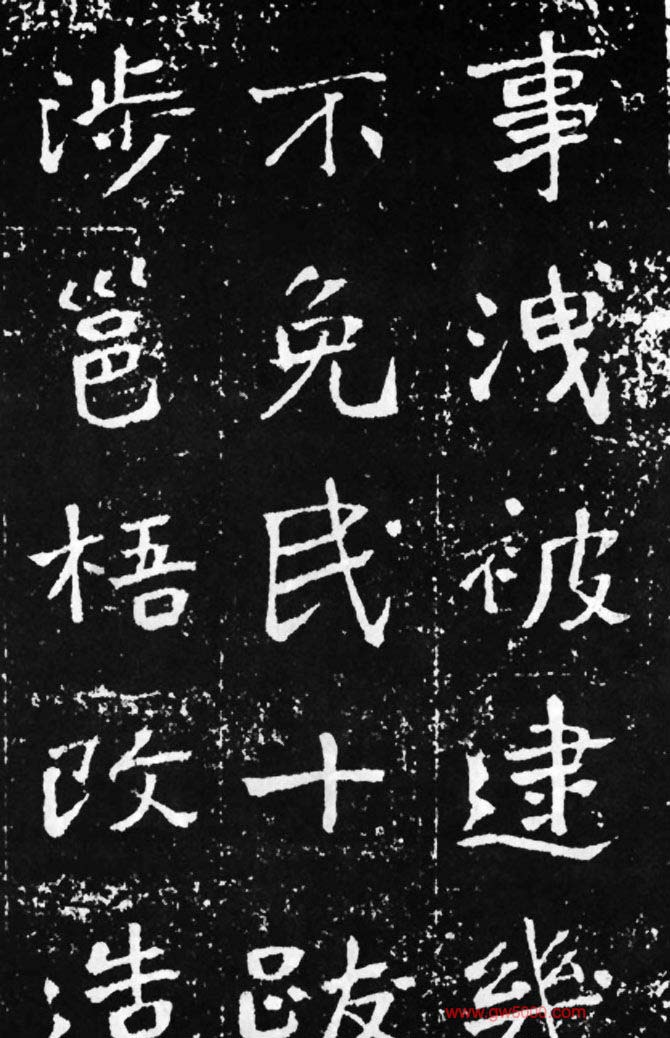 事洩被逮幾
不免民十跋
涉邕梧改浩
www.gw5000.com